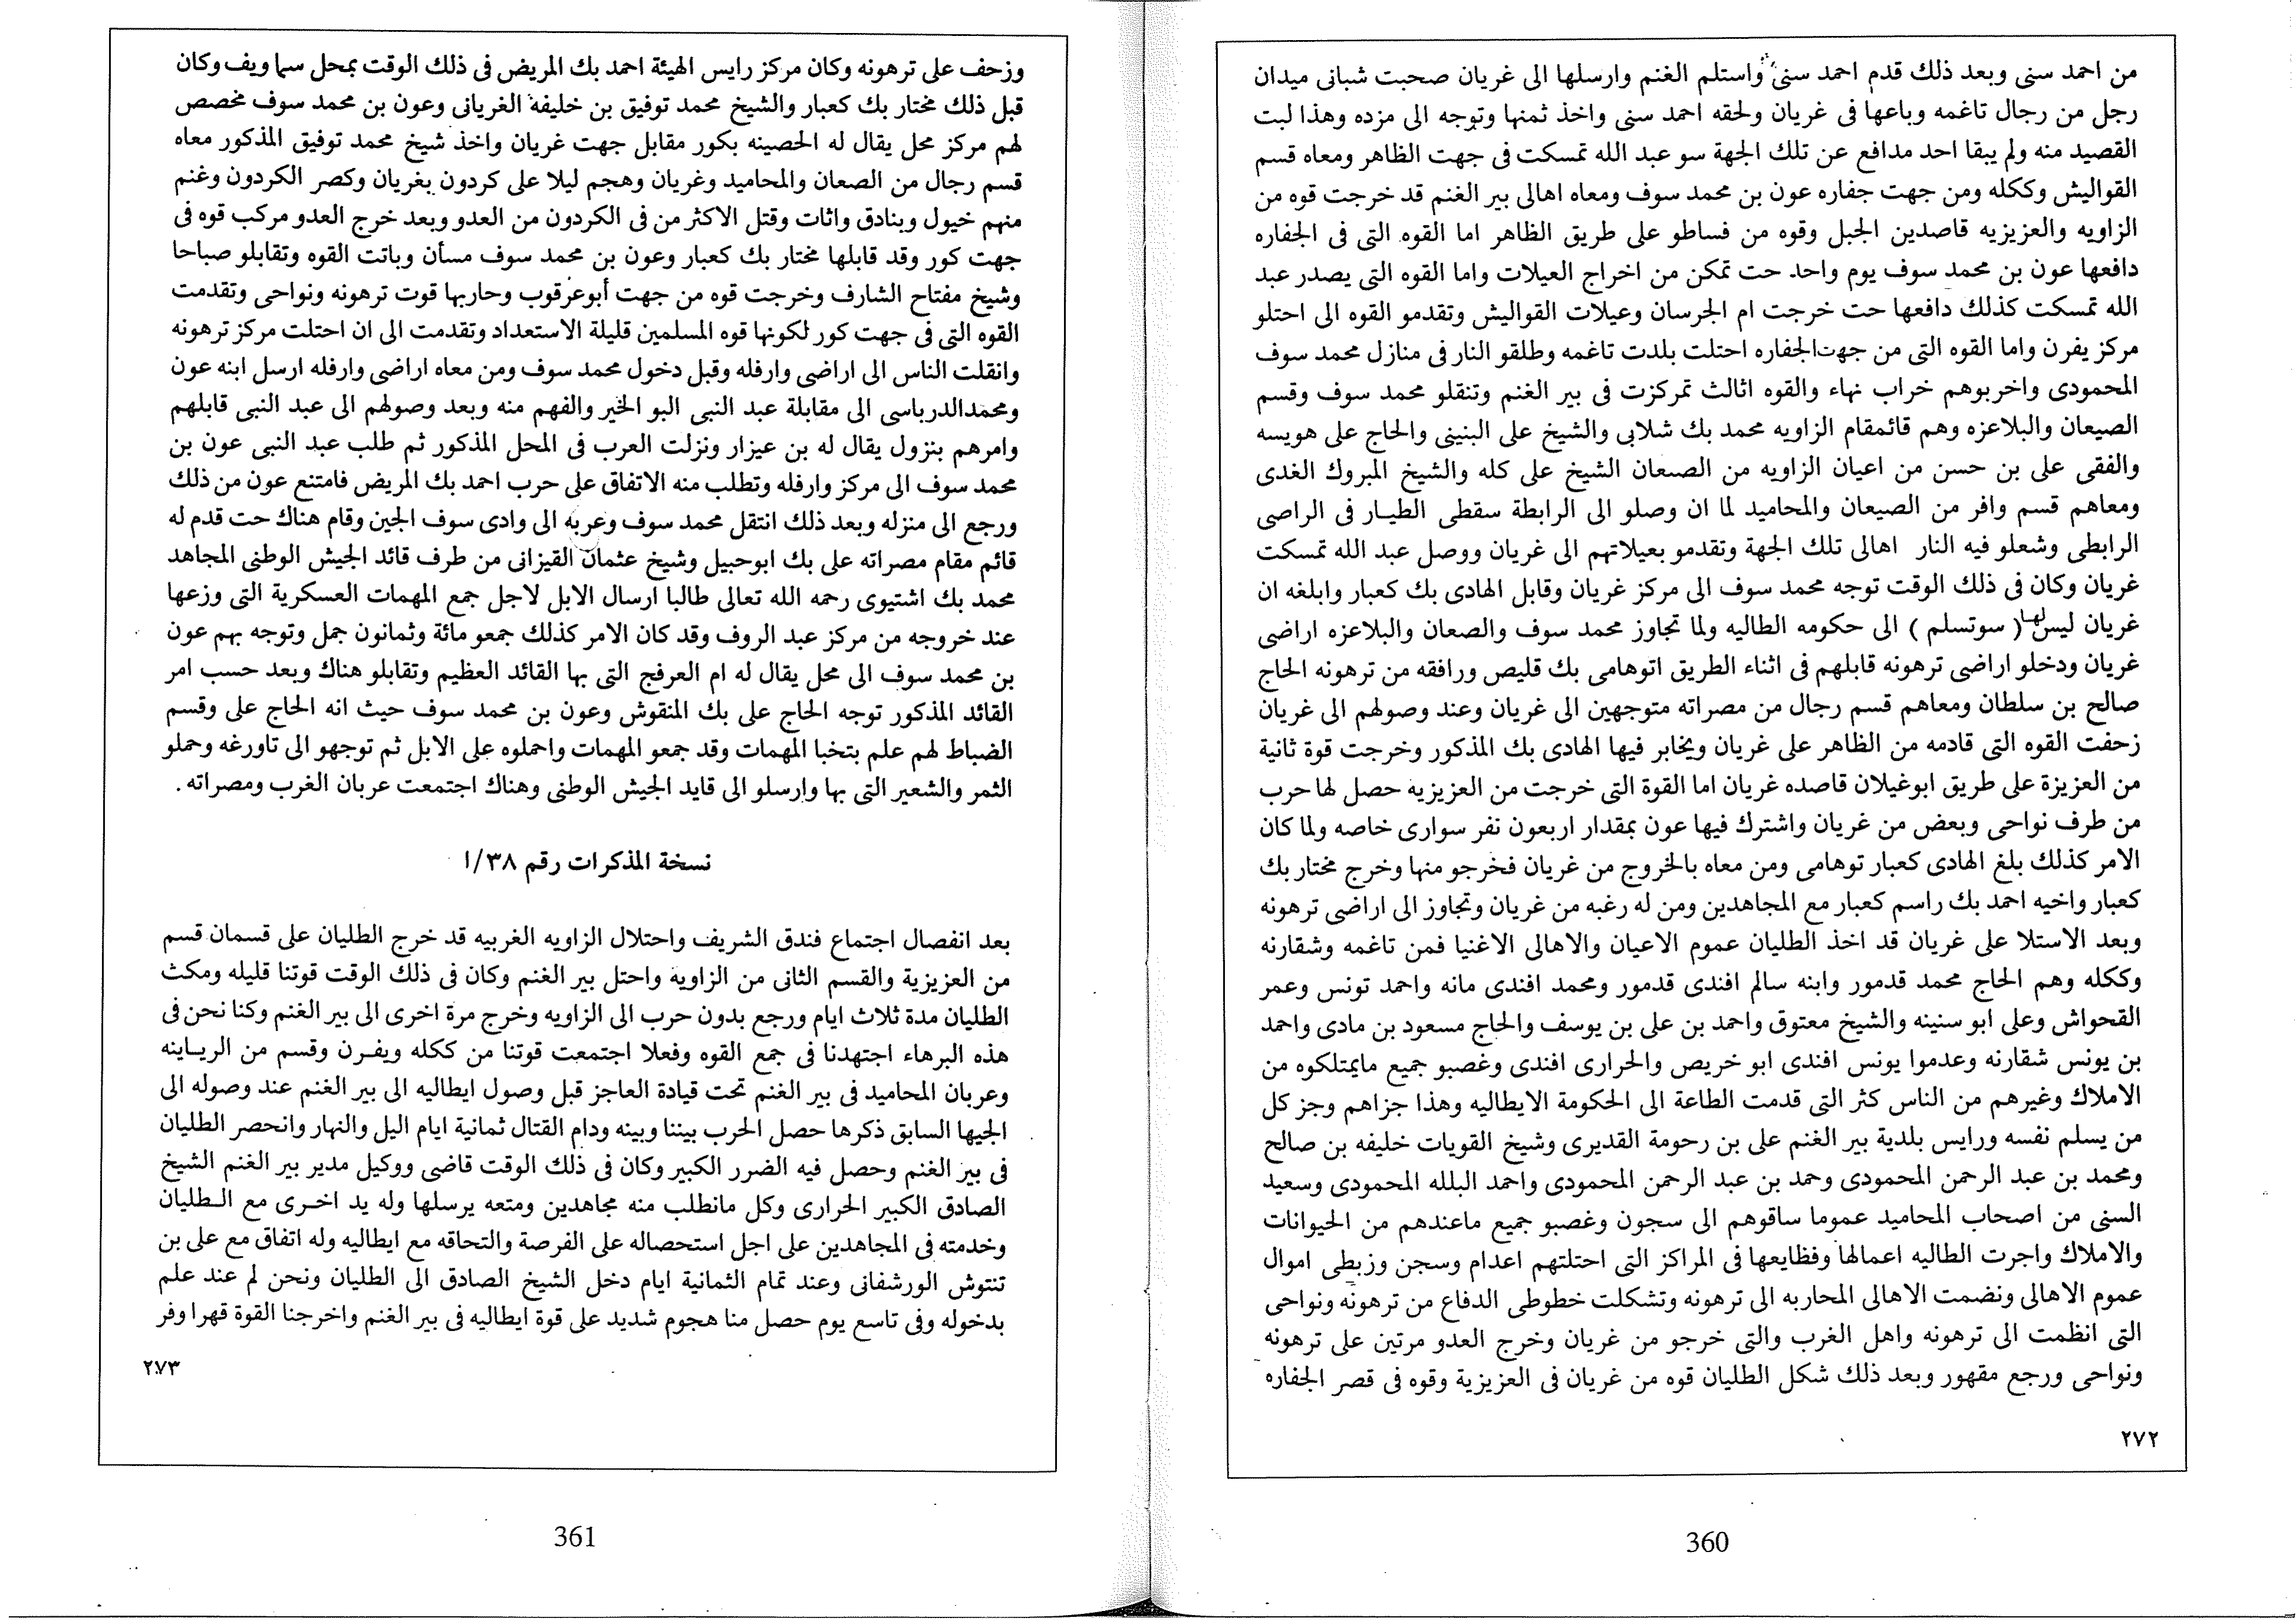 من احمد سنى وبعد ذلك قدم احمد سنى واستلم الغنم وارسلها الى غريان صحبت شبانى ميدان
رجل من رجال تاغمه وباعها فى غريان ولحقه احمد سنى واخذ ثمنها وتوجه الى مزده وهذا لبت
القصيد منه ولم يبقا احد مدافع عن تلك الجهة سو عبد الله تمسكت فى جهت الظاهر ومعاه قسم
القواليش وككله ومن جهت جفاره عون بن محمد سوف ومعاه اهالى بير الغنم قد خرجت قوه من
الزاويه والعزيزيه قاصدين الجبل وقوه من فساطو على طريق الظاهر اما القوه التى فى الجفاره
دافعها عون بن محمد سوف يوم واحد حت تمكن من اخراج العيلات واما القوه التى يصدر عبد
الله تمسكت كذلك دافعها حت خرجت ام الجرسان وعيلات القواليش وتقدمو القوه الى احتلو
مركز يفرن واما القوه التى من جهت الجفاره احتلت بلدت تاغمه وطلقو النار فى منازل محمد سوف
المحمودى واخربوهم خراب نهاء والقوه اثالث تمركزت فى بير الغنم وتنقلو محمد سوف وقسم
الصيعان والبلاعزه وهم قائمقام الزاويه محمد بك شلابى والشيخ على البنينى والحاج على هويسه
والفقى على بن حسن من اعيان الزاويه من الصعان الشيخ على كله والشيخ المبروك الغدى
ومعاهم قسم وافر من الصيعان والمحاميد لما ان وصلو الى الرابطة سقطى الطيار فى الراصى
الرابطى وشعلو فيه النار اهالى تلك الجهة وتقدمو بعيلاتهم الى غريان ووصل عبد الله تمسكت
غريان وكان فى ذلك الوقت توجه محمد سوف الى مركز غريان وقابل الهادى بك كعبار وابلغه ان
غريان ليس لها ( سوتسلم ) الى حكومه الطاليه ولما تجاوز محمد سوف والصعان والبلاعزه اراضى
غريان ودخلو اراضى ترهونه قابلهم فى اثناء الطريق اتوهامى بك قليص ورافقه من ترهونه الحاج
صالح بن سلطان ومعاهم قسم رجال من مصراته متوجهين الى غريان وعند وصولهم الى غريان
زحفت القوه التى قادمه من الظاهر على غريان ويخابر فيها الهادى بك المذكور وخرجت قوة ثانية
من العزيزة على طريق ابوغيلان قاصده غريان اما القوة التى خرجت من العزيزيه حصل لها حرب
من طرف نواحى وبعض من غريان واشترك فيها عون بمقدار اربعون نفر سوارى خاصه ولما كان
الامر كذلك بلغ الهادى كعبار توهامى ومن معاه بالخروج من غريان فخرجو منها وخرج مختار بك
كعبار واخيه احمد بك راسم كعبار مع المجاهدين ومن له رغبه من غريان وتجاوز الى اراضى ترهونه
وبعد الاستلا على غريان قد اخذ الطليان عموم الاعيان والاهالى الاغنيا فمن تاغمه وشقارنه
وككله وهم الحاج محمد قدمور وابنه سالم افندى قدمور ومحمد افندى مانه واحمد تونس وعمر
القحواش وعلى ابو سنينه والشيخ معتوق واحمد بن على بن يوسف والحاج مسعود بن مادى واحمد
بن يونس شقارنه وعدموا يونس افندى ابو خريص والحرارى افندى وغصبو جميع مايمتلكوه من
الاملاك وغيرهم من الناس كثر التى قدمت الطاعة الى الحكومة الايطاليه وهذا جزاهم وجز كل
من يسلم نفسه ورايس بلدية بير الغنم على بن رحومة القديرى وشيخ القويات خليفه بن صالح
ومحمد بن عبد الرحمن المحمودى وحمد بن عبد الرحمن المحمودى واحمد البلله المحمودى وسعيد
السنى من اصحاب المحاميد عموما ساقوهم الى سجون وغصبو جميع ماعندهم من الحيوانات
والاملاك واجرت الطاليه اعمالها وفظايعها فى المراكز التى احتلتهم اعدام وسجن وزبطى اموال
عموم الاهالى ونضمت الاهالى المحاربه الى ترهونه وتشكلت خطوطى الدفاع من ترهونه ونواحى
التى انظمت الى ترهونه واهل الغرب والتى خرجو من غريان وخرج العدو مرتين على ترهونه
ونواحى ورجع مقهور وبعد ذلك شكل الطليان قوه من غريان فى العزيزية وقوه فى قصر الجفاره
٢٧٢
360
وزحف على ترهونه وكان مركز رايس الهيئة احمد بك المريض فى ذلك الوقت بمحل سما ويف وكان
قبل ذلك مختار بك كعبار والشيخ محمد توفيق بن خليفه الغريانى وعون بن محمد سوف مخصص
لهم مركز محل يقال له الحصينه بكور مقابل جهت غريان واخذ شيخ محمد توفيق المذكور معاه
قسم رجال من الصعان والمحاميد وغريان وهجم ليلا على كردون بغريان وكصر الكردون وغنم
منهم خيول وبنادق واثات وقتل الاكثر من فى الكردون من العدو وبعد خرج العدو مركب قوه فى
جهت كور وقد قابلها مختار بك كعبار وعون بن محمد سوف مسأن وباتت القوه وتقابلو صباحا
وشيخ مفتاح الشارف وخرجت قوه من جهت أبوعرقوب وحاربها قوت ترهونه ونواحى وتقدمت
القوه التى فى جهت كور لكونها قوه المسلمين قليلة الاستعداد وتقدمت الى ان احتلت مركز ترهونه
وانقلت الناس الى اراضى وارفله وقبل دخول محمد سوف ومن معاه اراضى وارفله ارسل ابنه عون
ومحمدالدرباسى الى مقابلة عبد النبى البو الخير والفهم منه وبعد وصولهم الى عبد النبى قابلهم
وامرهم بنزول يقال له بن عيزار ونزلت العرب فى المحل المذكور ثم طلب عبد النبى عون بن
محمد سوف الى مركز وارفله وتطلب منه الاتفاق على حرب احمد بك المريض فامتنع عون من ذلك
ورجع الى منزله وبعد ذلك انتقل محمد سوف وعربه الى وادى سوف الجين وقام هناك حت قدم له
قائم مقام مصراته على بك ابوحبيل وشيخ عثمان القيزانى من طرف قائد الجيش الوطنى المجاهد
محمد بك اشتيوى رحمه الله تعالى طالبا ارسال الابل لاجل جمع المهمات العسكرية التى وزعها
عند خروجه من مركز عبد الروف وقد كان الامر كذلك جمعو مائة وثمانون جمل وتوجه بهم عون
بن محمد سوف الى محل يقال له ام العرفج التى بها القائد العظيم وتقابلو هناك وبعد حسب امر
القائد المذكور توجه الحاج على بك المنقوش وعون بن محمد سوف حيث انه الحاج على وقسم
الضباط لهم علم بتخبا المهمات وقد جمعو المهمات واحملوه على الابل ثم توجهو الى تاورغه وحملو
الثمر والشعير التى بها وارسلو الى قايد الجيش الوطنى وهناك اجتمعت عربان الغرب ومصراته .
نسخة المذكرات رقم ١/٣٨
بعد انفصال اجتماع فندق الشريف واحتلال الزاويه الغربيه قد خرج الطليان على قسمان قسم
من العزيزية والقسم الثانى من الزاويه واحتل بير الغنم وكان فى ذلك الوقت قوتنا قليله ومكث
الطليان مدة ثلاث ايام ورجع بدون حرب الى الزاويه وخرج مرة اخرى الى بير الغنم وكنا نحن فى
هذه البرهاء اجتهدنا فى جمع القوه وفعلا اجتمعت قوتنا من ككله ويفرن وقسم من الرياينه
وعربان المحاميد فى بير الغنم تحت قيادة العاجز قبل وصول ايطاليه الى بير الغنم عند وصوله الى
الجيها السابق ذكرها حصل الحرب بيننا وبينه ودام القتال ثمانية ايام اليل والنهار وانحصر الطليان
فى بير الغنم وحصل فيه الضرر الكبير وكان فى ذلك الوقت قاضى ووكيل مدير بير الغنم الشيخ
الصادق الكبير الحرارى وكل مانطلب منه مجاهدين ومتعه يرسلها وله يد اخرى مع الطليان
وخدمته فى المجاهدين على اجل استحصاله على الفرصة والتحاقه مع ايطاليه وله اتفاق مع على بن
تنتوش الورشفانى وعند تمام الثمانية ايام دخل الشيخ الصادق الى الطليان ونحن لم عند علم
بدخوله وفى تاسع يوم حصل منا هجوم شديد على قوة ايطاليه فى بير الغنم واخرجنا القوة قهرا وفر
٢٧٣
361